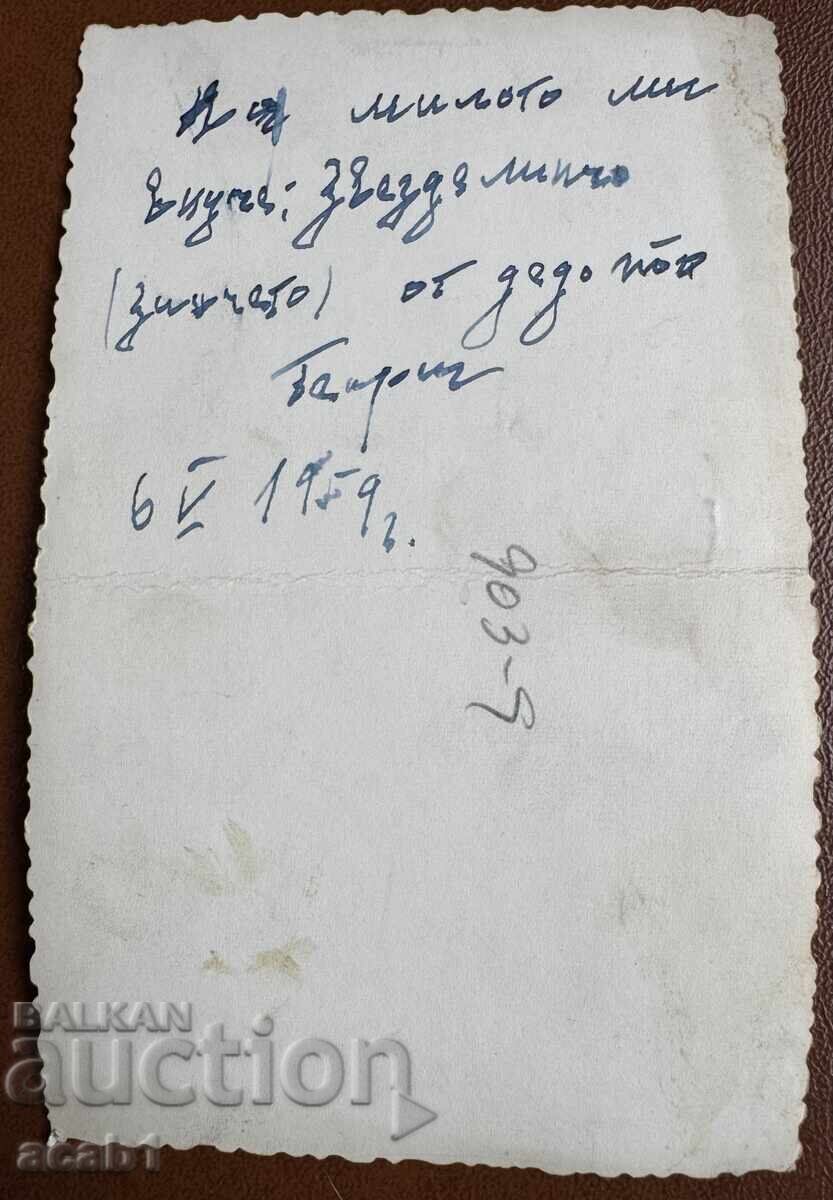 На милото ми
внуче: Звездалинчо
(Зинчето) от дядо поп
6 V 1959 г.
903-9
BALKAN
auction
acab1